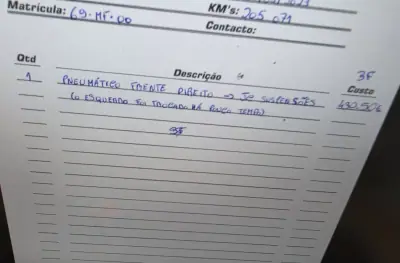 Matrícula: 69-MF-00
KM's: 205 071
Contacto:
Qtd Descrição Custo
1 PNEUMÁTICO FRENTE DIREITO SUSPENSÕES 430.50€
(O ESQUERDO FOI TROCADO HÁ POUCO TEMPO)